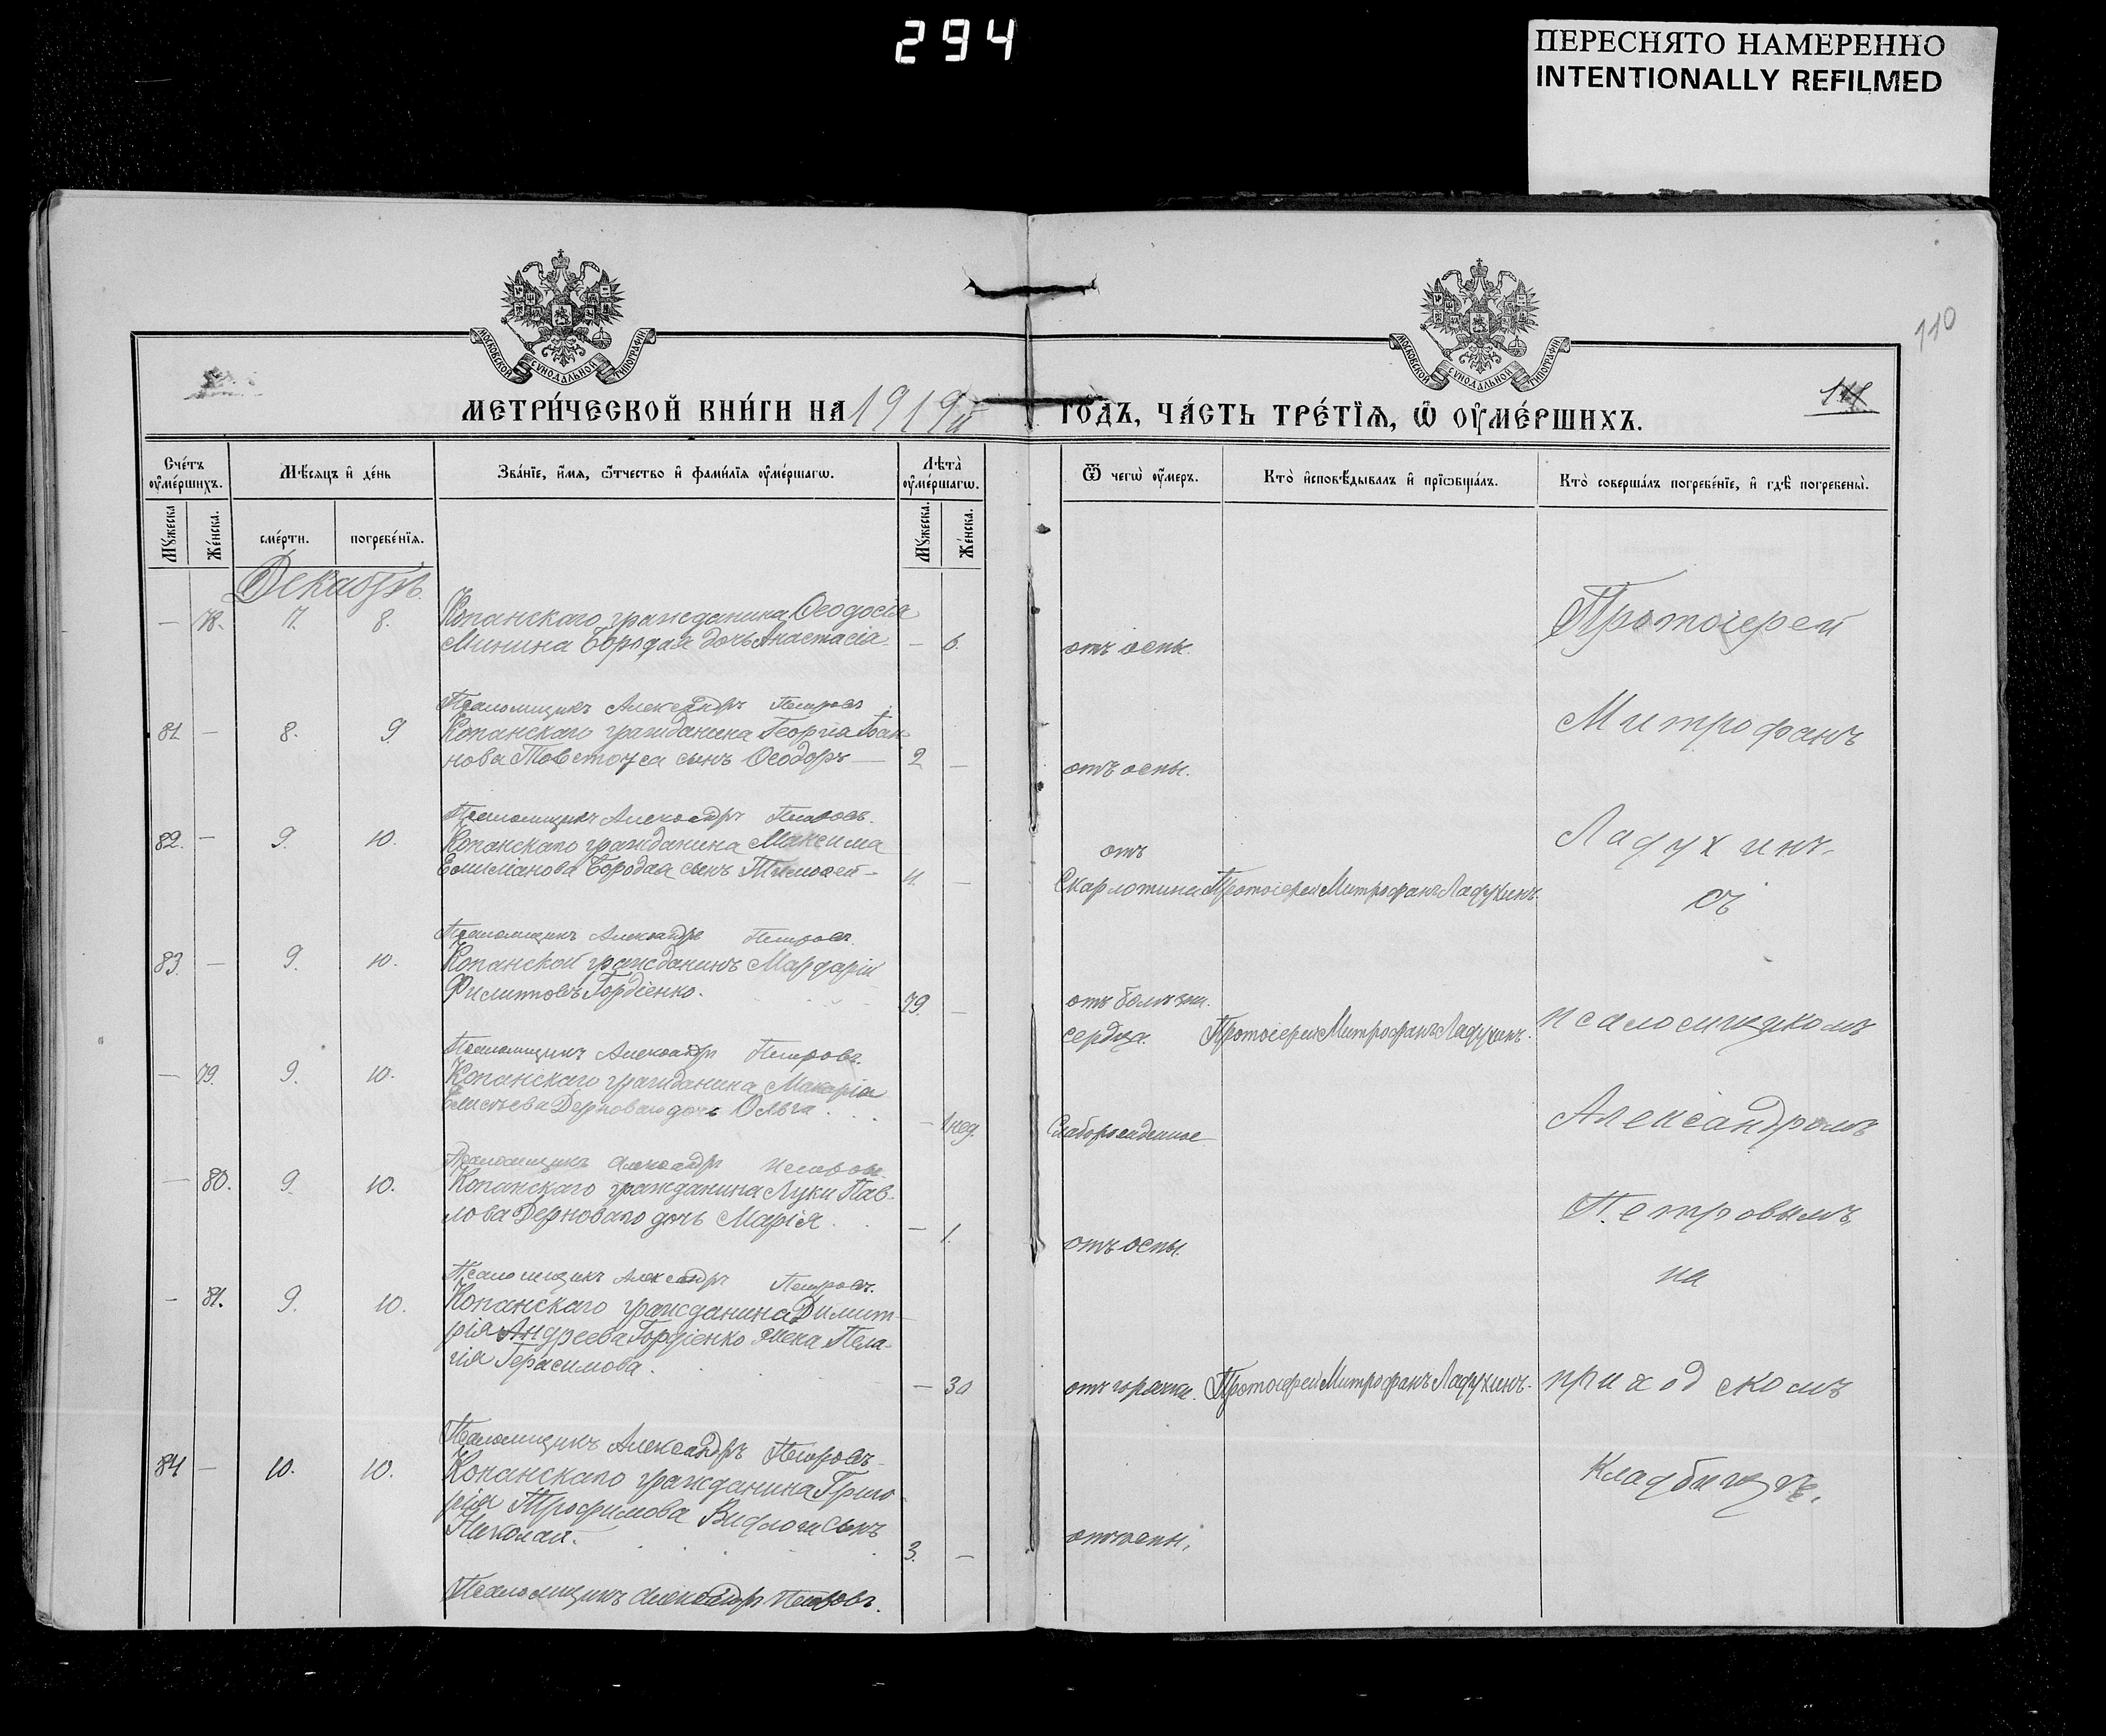 294
ПЕРЕСНЯТО НАМЕРЕННО
INTENTIONALLY REFILMED
110
МОСКОВСКОЙ СѴНОДАЛЬНОЙ ТИПОГРАФІИ
МОСКОВСКОЙ СѴНОДАЛЬНОЙ ТИПОГРАФІИ
МЕТРИ́ЧЕСКОЙ КНИ́ГИ НА 1919й ГОДЪ, ЧА́СТЬ ТРЕ́ТІѦ, Ѽ ОУ҆МЕ́РШИХЪ.
Сче́тъ оу҆ме́ршихъ.
Мѣ́сяцъ и҆ де́нь
Зва́нїе, и҆́мя, ѻ҆́тчество и҆ фами́лїя оу҆ме́ршагѡ.
Лѣта̀ оу҆ме́ршагѡ.
Ѿ чегѡ̀ оу҆́меръ.
Кто̀ и҆сповѣ́дывалъ и҆ прїѡбща́лъ.
Кто̀ соверша́лъ погребе́нїе, и҆ гдѣ̀ погребены̀.
Мꙋ́жеска
Же́нска.
сме́рти.
погребе́нїя.
Мꙋ́жеска.
Же́нска.
Декабрь.
— 78. 7. 8. Копанскаго гражданина Ѳеодосія
Минина Бородая дочь Анастасія — 6. отъ оспы.
Протоіерей
Псаломщикъ Александръ Петровъ
81 — 8. 9. Копанскаго гражданина Георгія Іоан
нова Товстоуса сынъ Ѳеодоръ — 2 — отъ оспы.
Митрофанъ
Псаломщикъ Александръ Петровъ.
82. — 9. 10. Копанскаго гражданина Максима
Бородая сынъ Тимоѳей — 4. — отъ
Скарлотина Протоіерей Митрофанъ Ладухинъ.
Ладухинъ
съ
Псаломщикъ Александръ Петровъ.
83. — 9. 10. Копанской гражданинъ Мардарій
Филипповъ Гордіенко. 79. — отъ болѣзни
сердца. Протоіерей Митрофанъ Ладухинъ.
псаломщикомъ
Псаломщикъ Александръ Петровъ.
— 79. 9. 10. Копанскаго гражданина Макарія
Елисѣева Дерноваго дочь Ольга. — 1 нед. Слаборожденное
Александромъ
Псаломщикъ Александръ Петровъ
— 80. 9. 10. Копанскаго гражданина Луки Пав-
лова Дерноваго дочь Марія. — 1. отъ оспы.
Петровымъ
на
Псаломщикъ Александръ Петровъ.
— 81. 9. 10. Копанскаго гражданина Димит-
рія Андреева Гордіенко жена Пела-
гія Герасимова. — 30 отъ горячки. Протоіерей Митрофанъ Ладухинъ.
приходскомъ
Псаломщикъ Александръ Петровъ
84 — 10. 10. Копанскаго гражданина Григо
рія Трофимова сынъ
Николай. 3. — отъ оспы.
Кладбищѣ.
Псаломщикъ Александръ Петровъ.